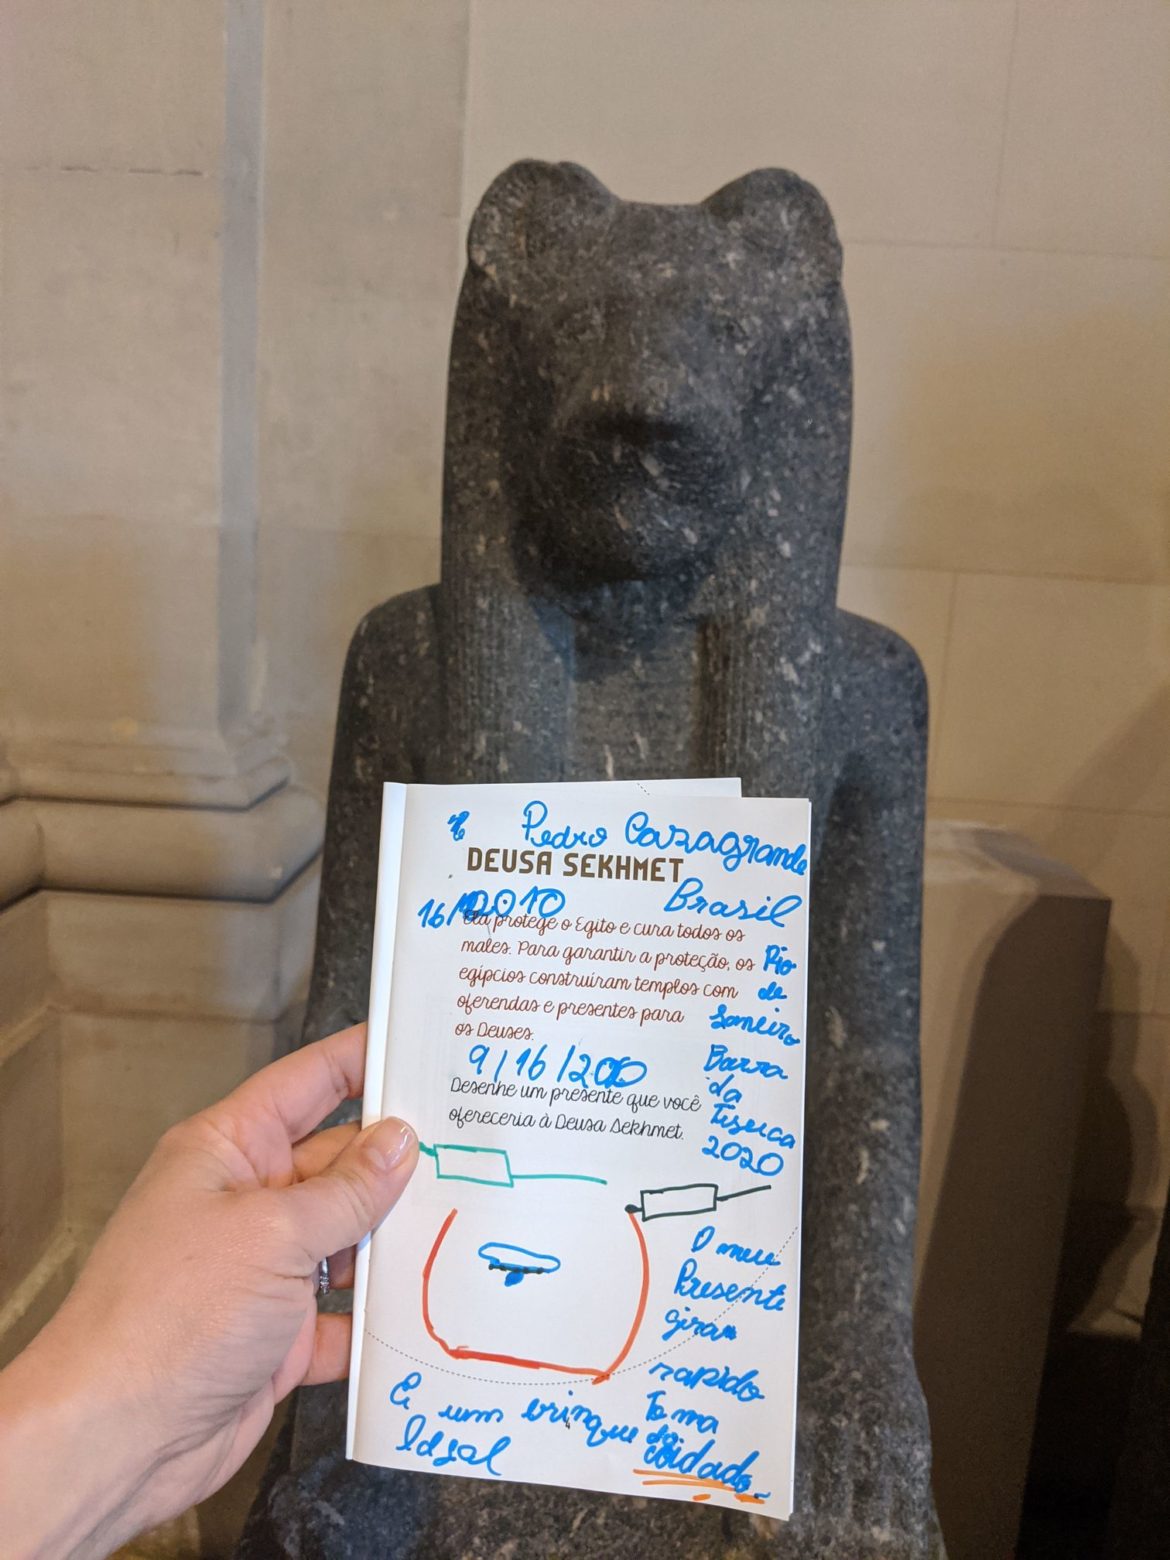 Pedro Cazagrande
DEUSA SEKHMET
Brasil
Ela protege o Egito e cura todos os
males. Para garantir a proteção, os
egípcios construíram templos com
oferendas e presentes para
os Deuses.
Rio
de
Janeiro
Barra
da
Tijuca
2020
Desenhe um presente que você
ofereceria à Deusa Sekhmet.
O meu
Presente
giram
rapido
Toma
cuidado
E um brinquedo
4